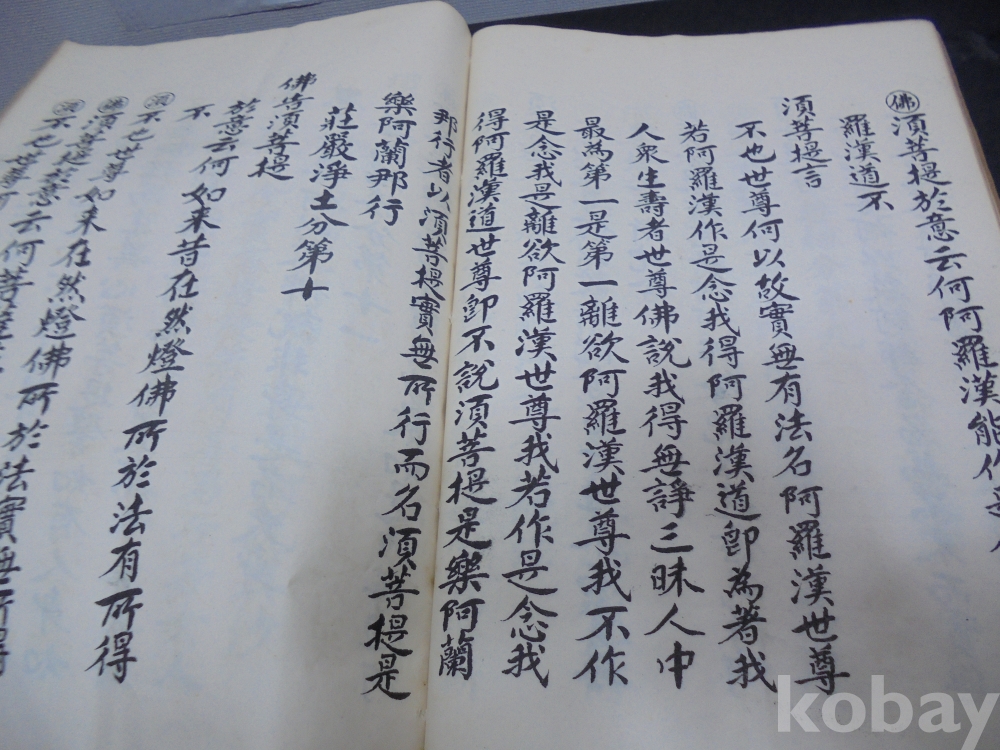 佛 須菩提於意云何阿羅漢能作是
羅漢道不
須菩提言
不也世尊何以故實無有法名阿羅漢世尊
若阿羅漢作是念我得阿羅漢道卽為著我
人衆生壽者世尊佛說我得無諍三昧人中
最為第一是第一離欲阿羅漢世尊我不作
是念我是離欲阿羅漢世尊我若作是念我
得阿羅漢道世尊卽不說須菩提是樂阿蘭
那行者以須菩提實無所行而名須菩提是
樂阿蘭那行
莊嚴淨土分第十
佛告須菩提
於意云何如來昔在然燈佛所於法有所得
不
須 不也世尊如來在然燈佛所於法實無所得
佛 須菩提於意云何菩薩
須 不也世尊何
kobay